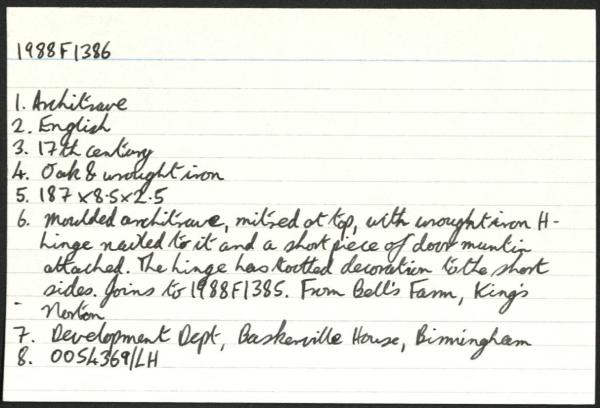 1988F1386
1. Architrave
2. English
3. 17th century
4. Oak & wrought iron
5. 187 x 8.5 x 2.5
6. Moulded architrave, mitred at top, with wrought iron H-
hinge nailed to it and a short piece of door muntin
attached. The hinge has decoration to the short
sides. Joins to 1988F1385. From Bell's Farm, King's
- Norton
7. Development Dept, Baskerville House, Birmingham
8. 0054369/LH